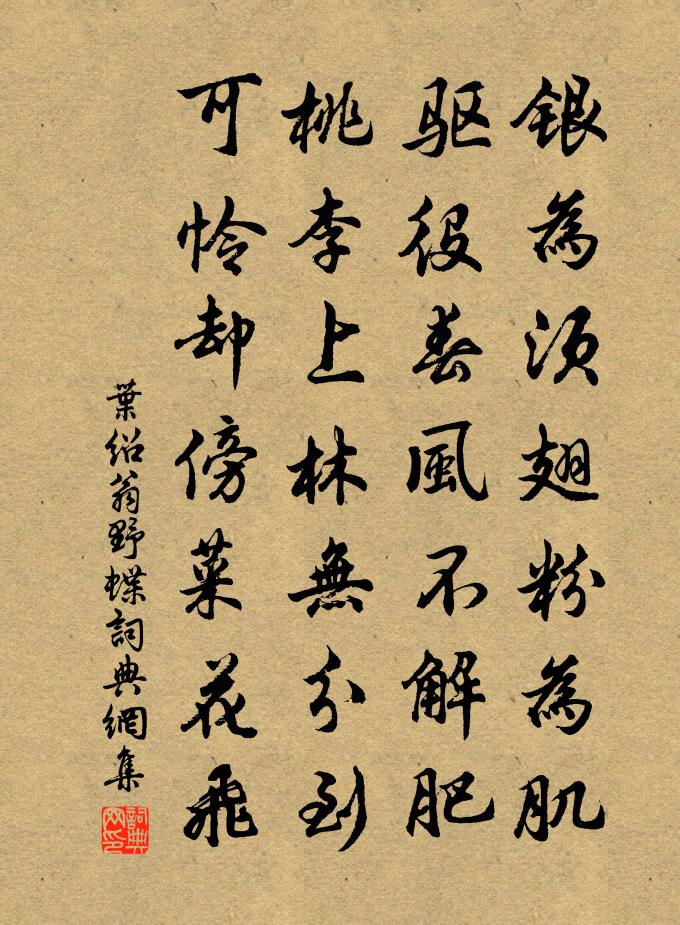 銀為须翅粉為肌
驱役春風不解肥
桃李上林無分到
可怜却傍菜花飛
葉绍翁野蝶詞典網集
詞典網印